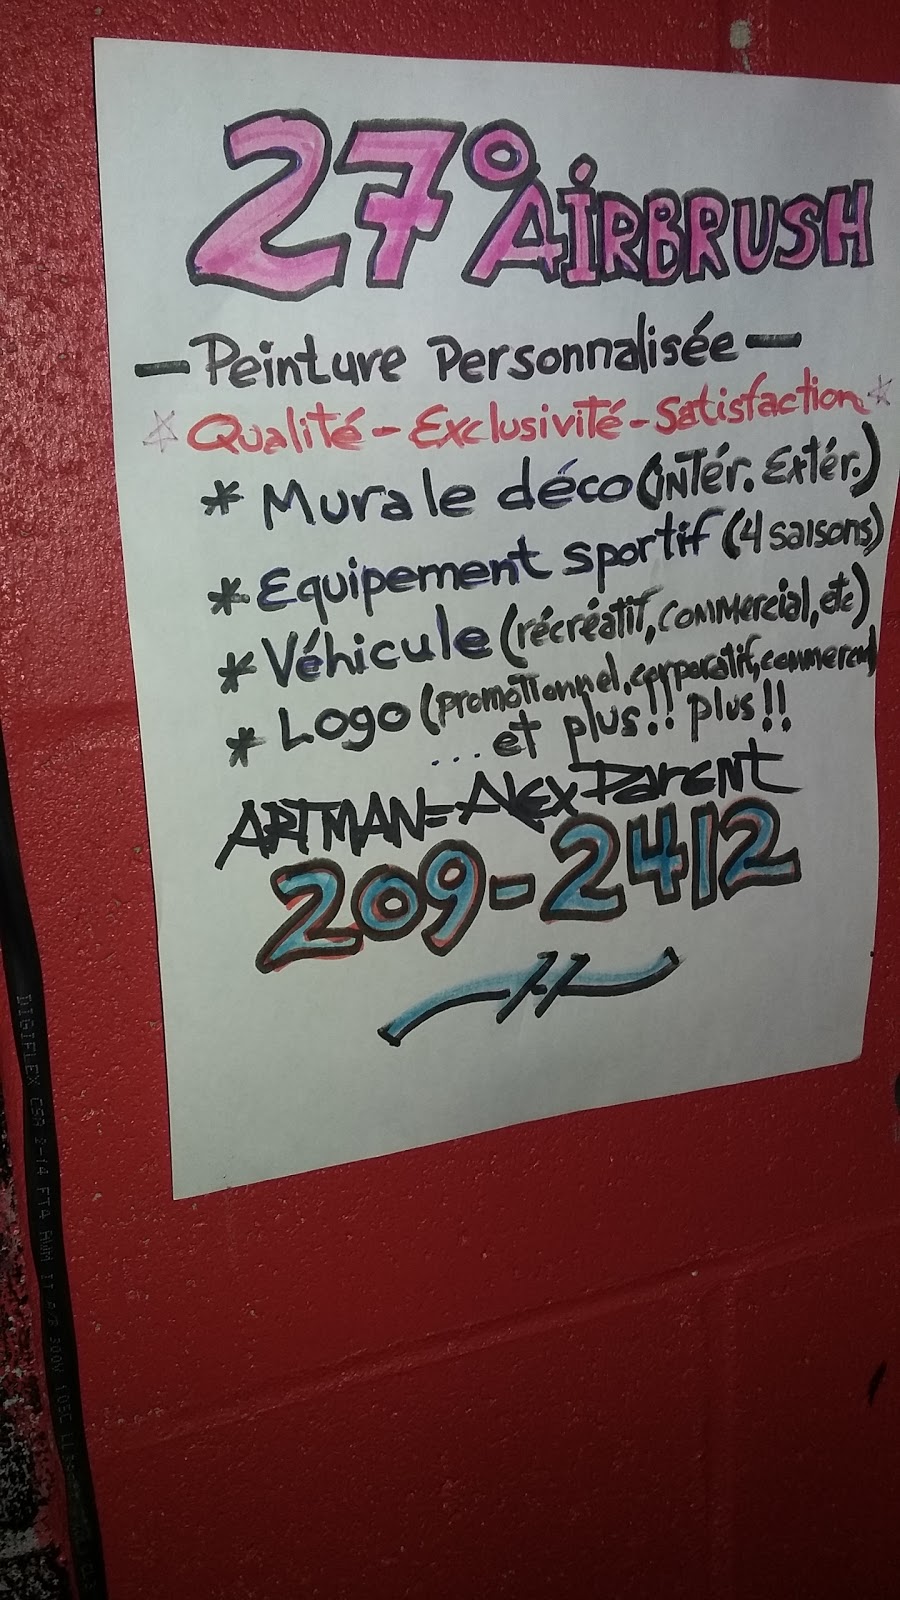 27° AiRBRUSH
— Peinture Personnalisée —
☆ Qualité - Exclusivité - Satisfaction ☆
* Murale déco (intér. Extér.)
* Equipement sportif (4 saisons)
* Véhicule (récréatif, commercial, etc)
* Logo (promotionnel, corporatif, commercial)
....et plus!! plus!!
ARTMAN = Alex Parent
209-2412
DIGIFLEX CSA 2-14 FT4 AWM II A/B 300V